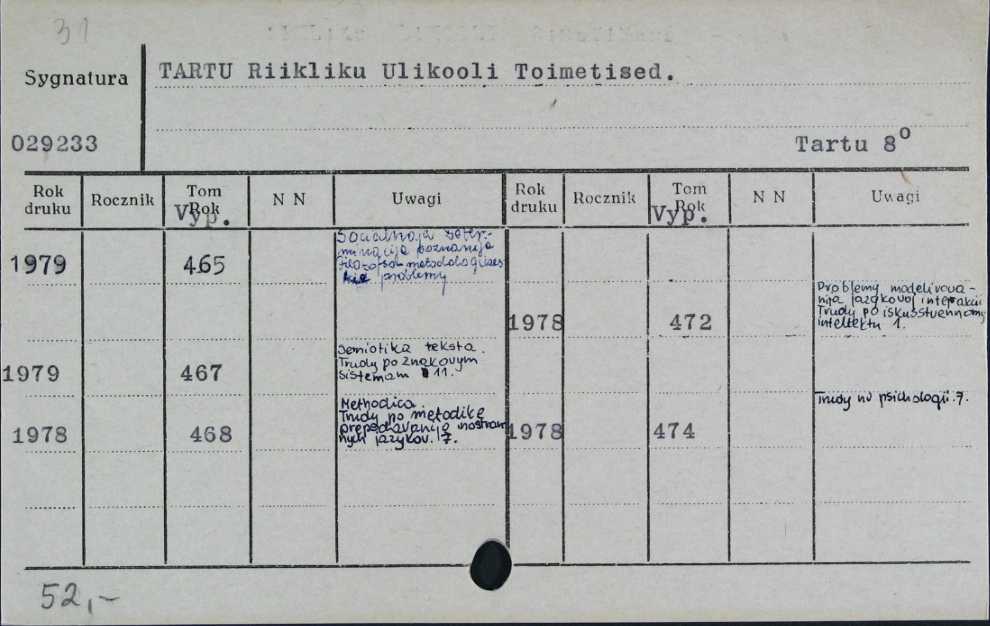 31
Sygnatura
TARTU Riikliku Ulikooli Toimetised.
029233
Tartu 8°
Rok druku
Rocznik
Tom Rok
Vyp.
N N
Uwagi
Rok druku
Rocznik
Tom Rok
Vyp.
N N
Uwagi
1979 465
Socialnaja deter-
minacija poznanija
Filozofsko-metodologiczes
kie problemy
1978 472
Problemy modelirova-
nija jazykovoj interakcii
Trudy po iskusstvennomu
intellektu 1.
1979 467
Semiotika teksta.
Trudy po znakovym
sistemam 11.
1978 468
Methodica.
Trudy po metodike
prepodavanija inostran
nych jazykov. 7.
1978 474
Trudy po psichologii. 7.
52,-